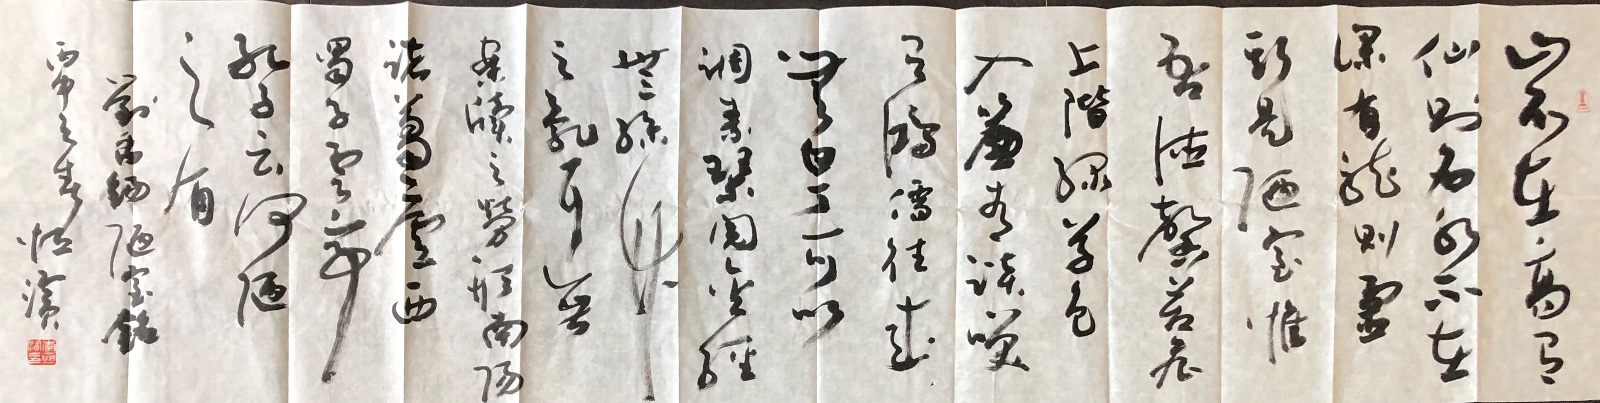 山不在高有
仙則名水不在
深有龍則靈
斯是陋室惟
吾德馨苔痕
上階綠草色
入簾青談笑
有鴻儒往來
無白丁可以
調素琴閱金經
無絲竹
之亂耳無
案牘之勞形南陽
諸葛廬西
蜀子雲亭
孔子云何陋
之有
劉禹錫陋室銘
丙申之春